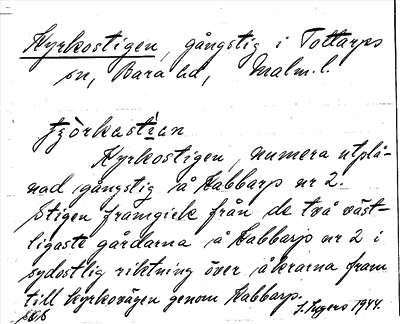 Kyrkostigen, gångstig i Tottarps
sn, Bara hd, Malm.l.
Kyrkostigen, numera utplå-
nad gångstig å Kabbarp nr 2.
Stigen framgick från de två väst-
ligaste gårdarna å Kabbarp nr 2 i
sydostlig riktning över åkrarna fram
till kyrkovägen genom Kabbarp.
I. Ingers 1944.